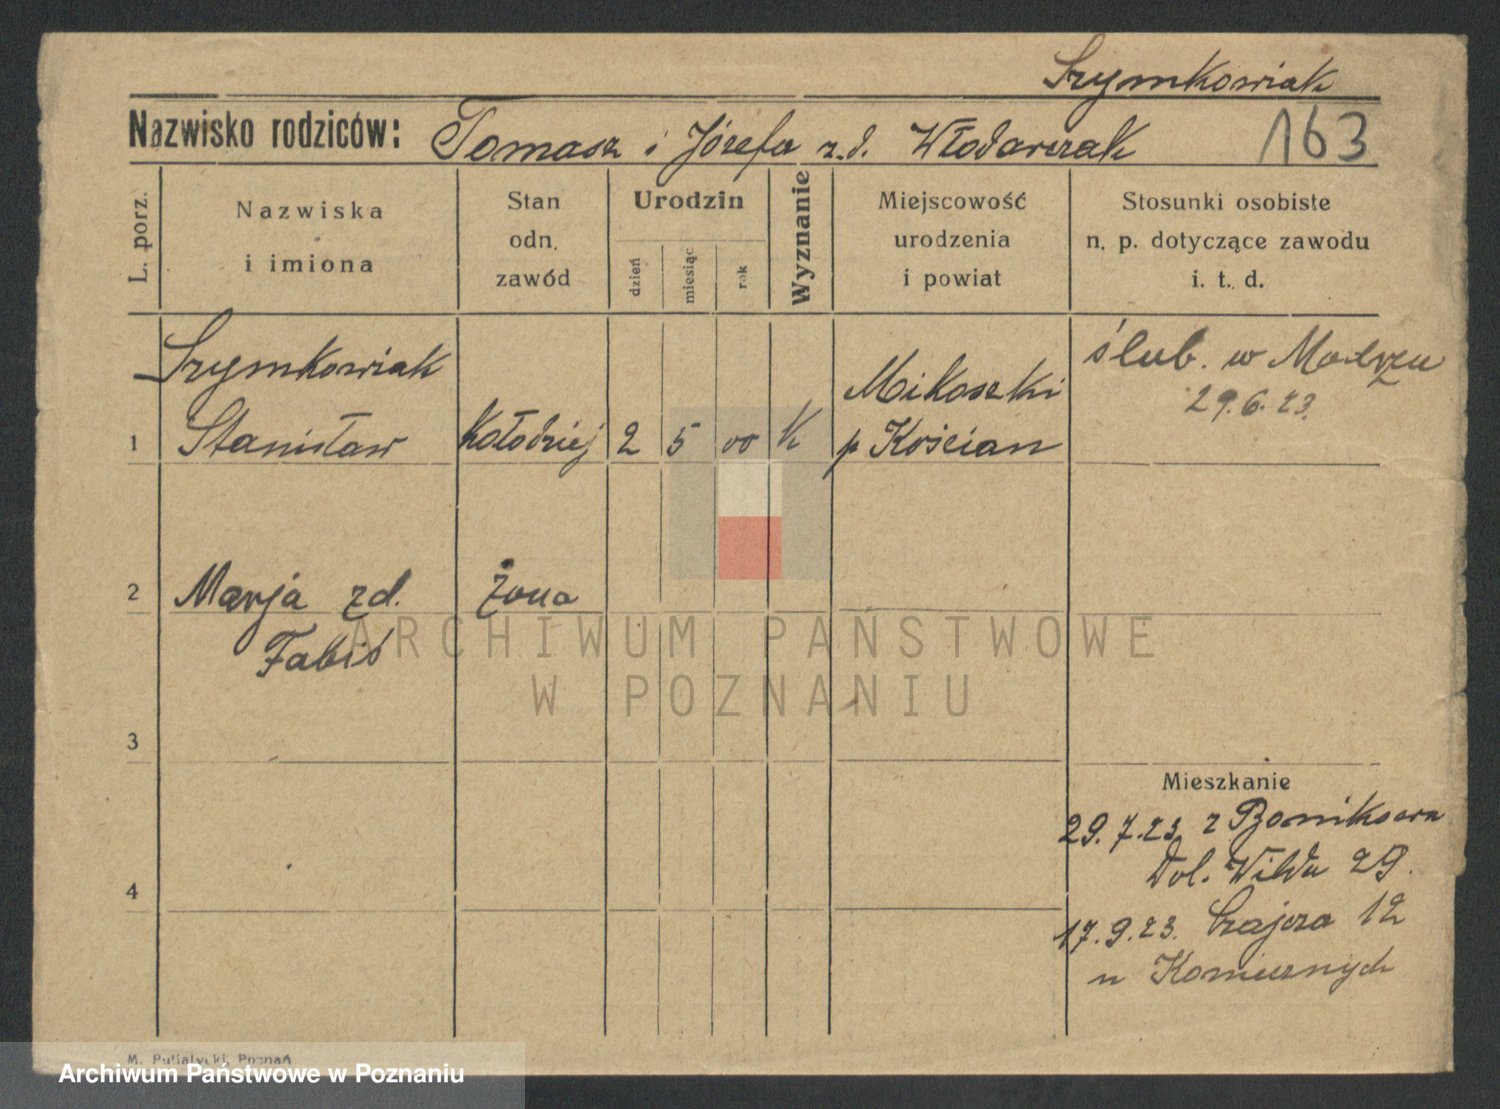 Szymkowiak
Nazwisko rodziców: Tomasz i Józefa z.d. Włodarczak 163
L. porz.
Nazwiska
i imiona
Stan
odn.
zawód
Urodzin
dzień
miesiąc
rok
Wyznanie
Miejscowość
urodzenia
i powiat
Stosunki osobiste
n. p. dotyczące zawodu
i. t. d.
Szymkowiak
1 Stanisław Kołodziej 2 5 00 K
Mikoszki
p Kościan
ślub. w Modrzu
29.6.23.
2 Marja zd. Żona
Fabiś
3
4
Mieszkanie
29.7.23 z
Dol. Wilda 29.
17.9.23. Czajcza 12
u
ARCHIWUM PAŃSTWOWE
W POZNANIU
M. Putiatycki, Poznań
Archiwum Państwowe w Poznaniu